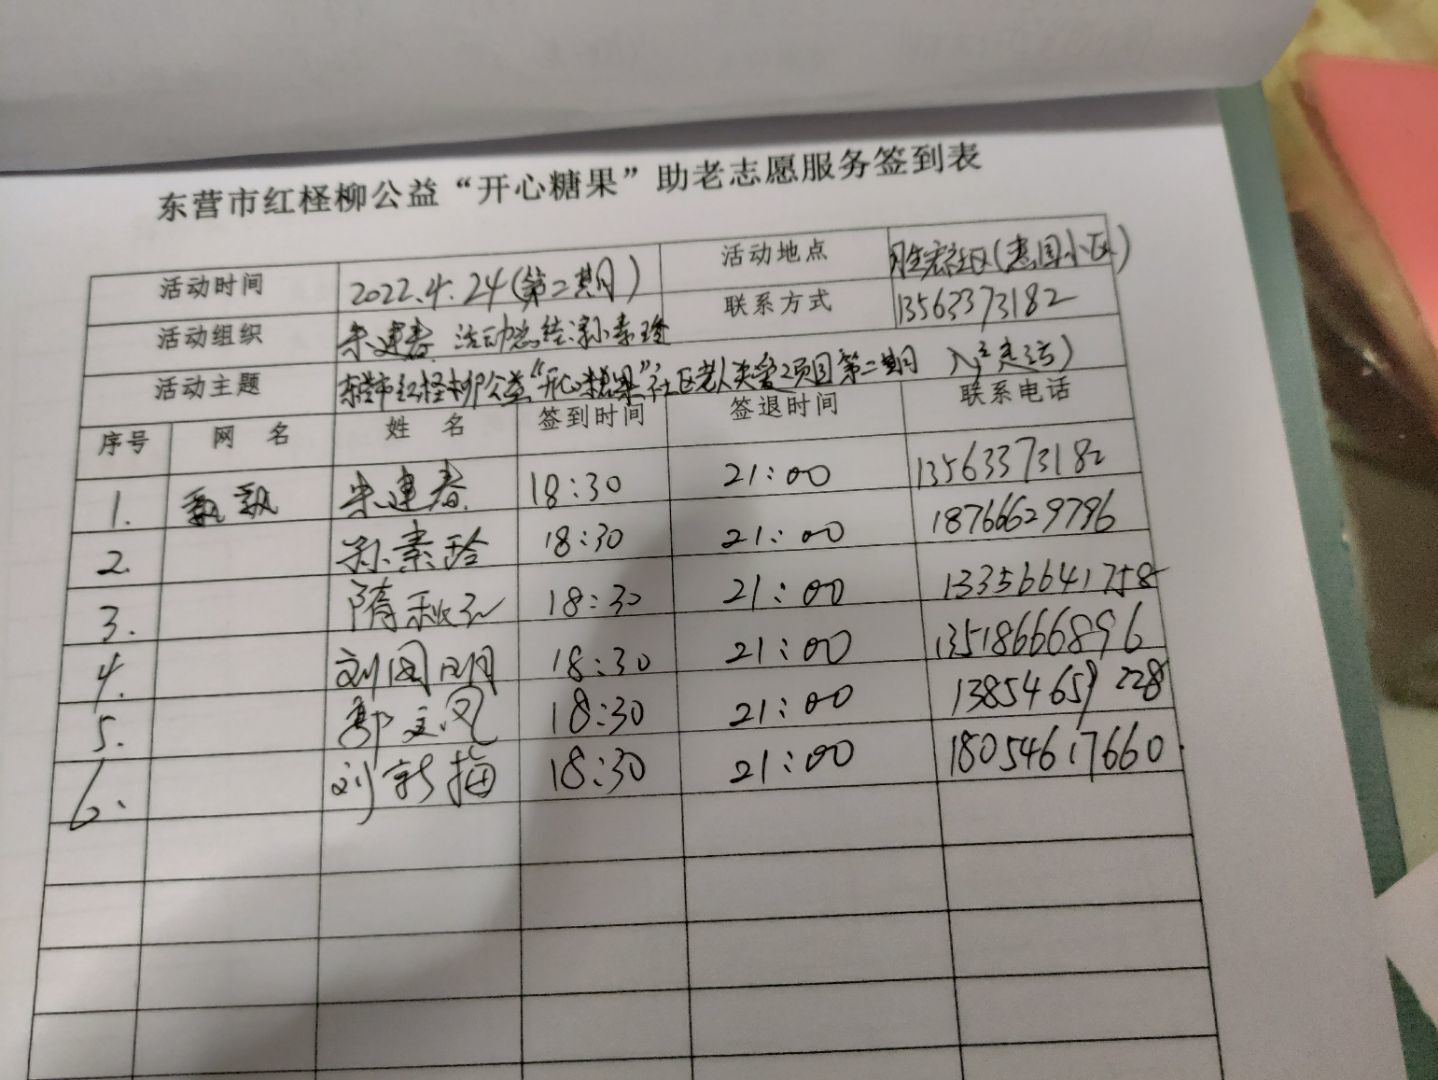 东营市红柽柳公益“开心糖果”助老志愿服务签到表
活动时间 2022.4.24(第二期) 活动地点 胜宏社区(惠园小区)
活动组织 朱建春 活动总结:孙素玲 联系方式 13563373182
活动主题 东营市红柽柳公益“开心糖果”社区老人关爱项目第二期 入户走访)
序号 网名 姓名 签到时间 签退时间 联系电话
1. 飘飘 朱建春 18:30 21:00 13563373182
2. 孙素玲 18:30 21:00 18766629796
3. 隋秋 18:30 21:00 13356641758
4. 刘国明 18:30 21:00 13518666896
5. 郭文凤 18:30 21:00 13854659228
6. 刘新梅 18:30 21:00 18054617660